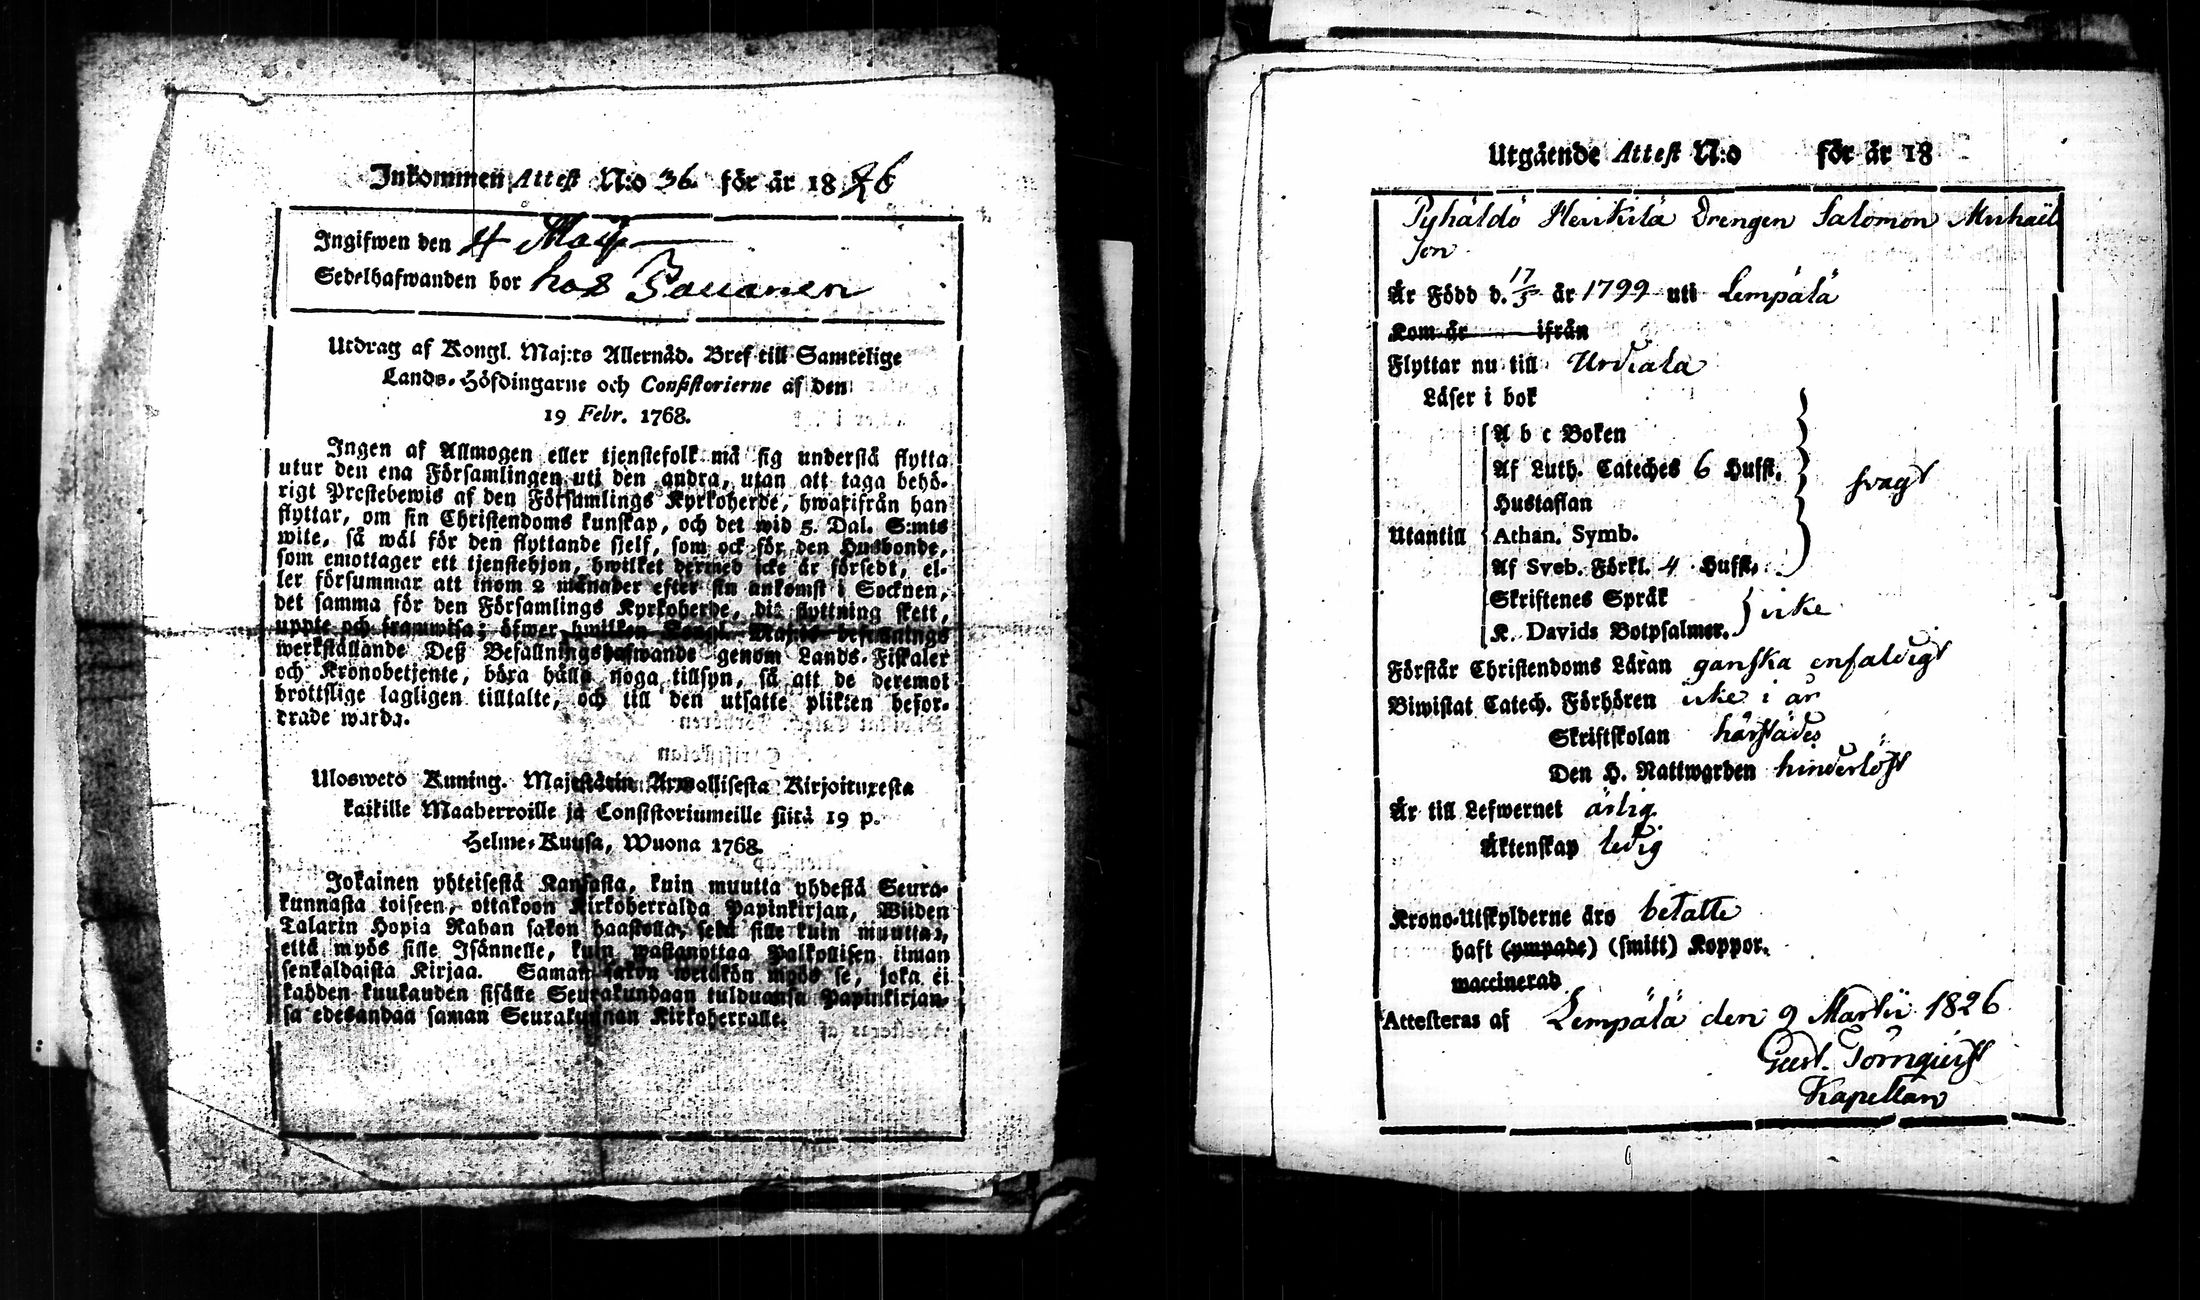 Inkommen Attest N:o 36. för år 1826
Ingifwen den 4 Maij
Sedelhafwanden bor hos
Utdrag af Kongl. Maj:ts Allernåd. Bref till Samtelige
Lands-Höfdingarne och Consistorierne af den
19 Febr. 1768.
Ingen af Allmogen eller tjenstefolk må sig understå flytta
utur den ena Församlingen uti den andra, utan att taga behö-
rigt Prestebewis af den Församlings Kyrkoherde, hwarifrån han
flyttar, om sin Christendoms kunskap, och det wid 5. Dal. S:mts
wite, så wäl för den flyttande sielf, som ock för den Husbonde,
som emottager ett tjenstehjon, hwilket dermed icke är försedt, el-
ler försummar att inom 2 månader efter sin ankomst i Socknen,
det samma för den Församlings Kyrkoherde, dit flyttning skett,
uppte och framwisa; öfwer hwilken Kongl. Maj:ts befallnings
werkställande Deß Befallningshafwande genom Lands-Fiskaler
och Kronobetjente, böra hålla noga tillsyn, så att de deremot
brottslige lagligen tilltalte, och till den utsatte plikten befor-
drade warda.
Ulosweto Kuning. Majestätin Armollisesta Kirjoituxesta
kaikille Maaherroille ja Consistoriumeille siitä 19 p.
Helme-Kuusa, Wuona 1768.
Jokainen yhteisestä Kansasta, kuin muutta yhdestä Seura-
kunnasta toiseen, ottakoon Kirkoherralda Papinkirjan, Wiiden
Talarin Hopia Rahan sakon haastolla, sekä sille kuin muuttaa,
että myös sille Isännelle, kuin wastanottaa Palkollisen ilman
senkaldaista Kirjaa. Saman sakon wetäkön myös se, joka ei
kahden kuukauden sisälle Seurakundaan tulduansa Papinkirjan-
sa edesandaa saman Seurakunnan Kirkoherralle.
Utgående Attest N:o för år 18
Pyhäldö Heikkilä Drengen Salomon Michaël
son
Är Född d. 17/5 år 1799 uti Lempälä
Kom år ifrån
Flyttar nu till Urdiala
Läser i bok
A b c Boken
Af Luth. Cateches 6 Hufst. svagt
Hustaflan
Utantill Athan. Symb.
Af Sveb. Förkl. 4 Hufst.
Skriftenes Språk icke
K. Davids Botpsalmer.
Förstår Christendoms Läran ganska enfaldigt
Biwistat Catech. Förhören icke i år
Skriftskolan härstädes
Den H. Nattwarden hinderlöst
Är till Lefwernet ärlig
Äktenskap ledig
Krono-Utskylderne äro betalte
haft (ympade) (smitt) Koppor.
waccinerad
Attesteras af Lempälä den 9 Martii 1826
Gust. Törnqvist
Kapellan